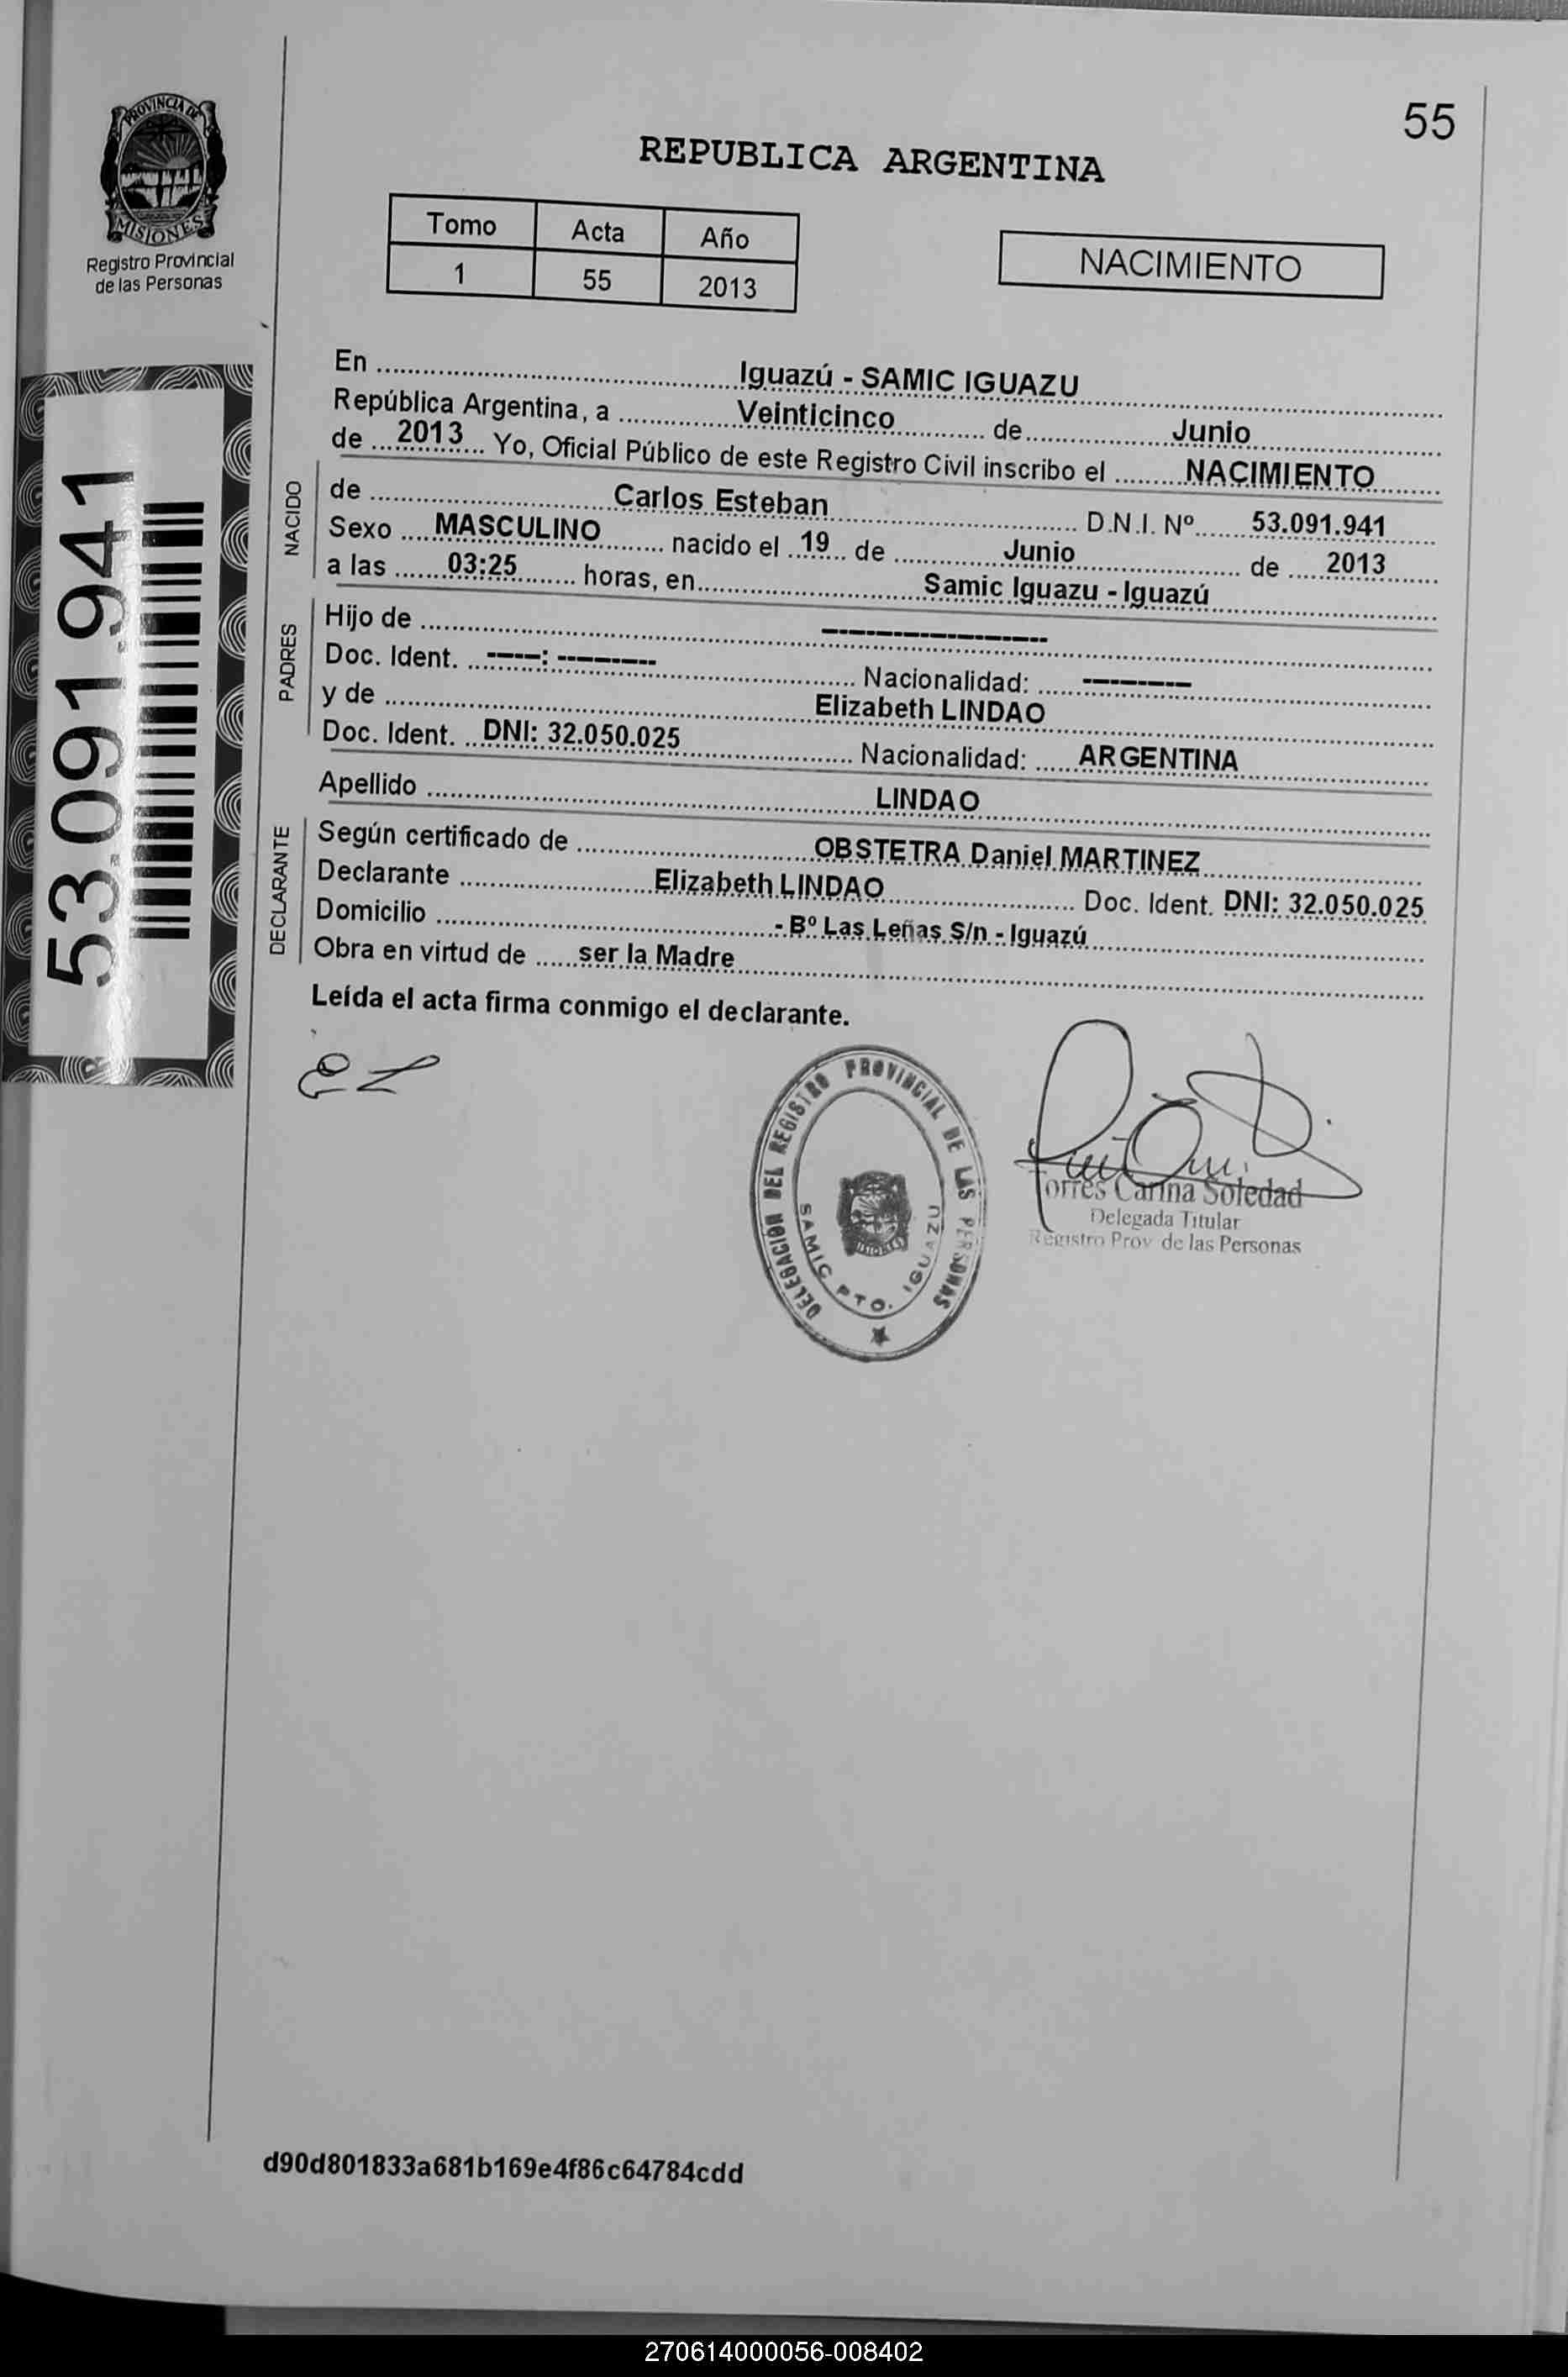 55
PROVINCIA DE
MISIONES
Registro Provincial
de las Personas
REPUBLICA ARGENTINA
Tomo Acta Año
1 55 2013
NACIMIENTO
53.091.941
En Iguazú - SAMIC IGUAZU
República Argentina, a Veinticinco de Junio
de 2013 Yo, Oficial Público de este Registro Civil inscribo el NACIMIENTO
NACIDO
de Carlos Esteban D.N.I. Nº 53.091.941
Sexo MASCULINO nacido el 19 de Junio de 2013
a las 03:25 horas, en Samic Iguazu - Iguazú
PADRES
Hijo de --------------------
Doc. Ident. -----: ---------- Nacionalidad: ----------
y de Elizabeth LINDAO
Doc. Ident. DNI: 32.050.025 Nacionalidad: ARGENTINA
Apellido LINDAO
DECLARANTE
Según certificado de OBSTETRA Daniel MARTINEZ
Declarante Elizabeth LINDAO Doc. Ident. DNI: 32.050.025
Domicilio - Bº Las Leñas S/n - Iguazú
Obra en virtud de ser la Madre
Leída el acta firma conmigo el declarante.
DELEGACIÓN DEL REGISTRO PROVINCIAL DE LAS PERSONAS
SAMIC PTO. IGUAZU
MISIONES
Torres Carina Soledad
Delegada Titular
Registro Prov de las Personas
d90d801833a681b169e4f86c64784cdd
270614000056-008402